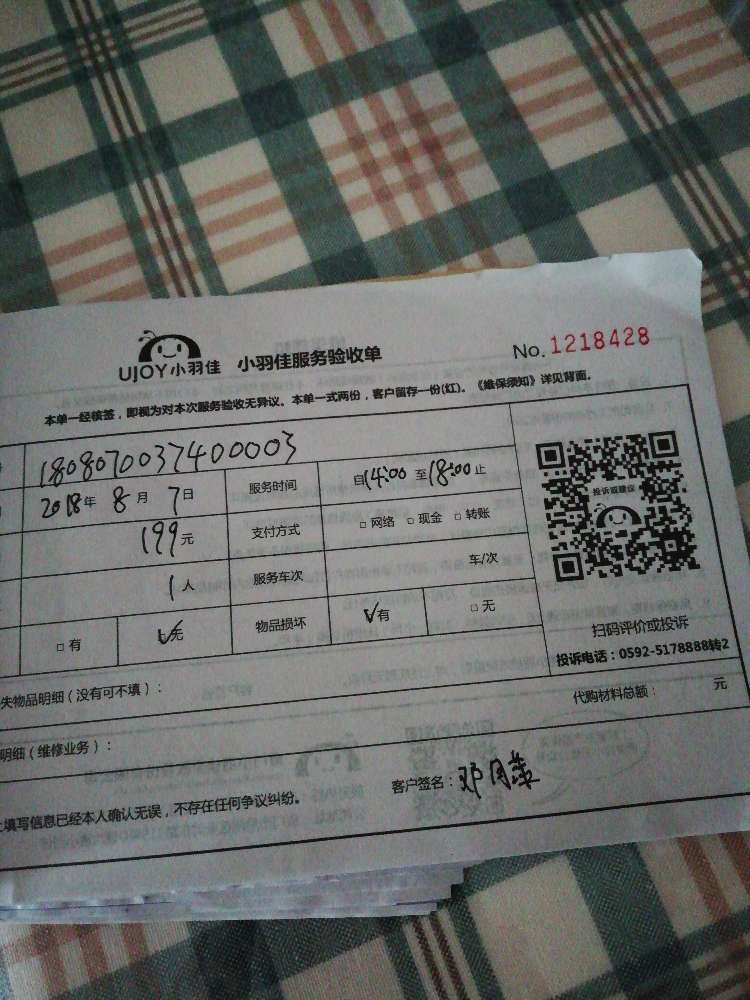 UJOY小羽佳 小羽佳服务验收单 No. 1218428
本单一经核签，即视为对本次服务验收无异议。本单一式两份，客户留存一份(红)。《维保须知》详见背面。
1808070037400003
2018年 8月 7日 服务时间 自14:00 至18:00止
199元 支付方式 □网络 □现金 □转账
1人 服务车次 车/次
□有 ☑无 物品损坏 ☑有 □无
投诉或建议
扫码评价或投诉
投诉电话：0592-5178888转2
失物品明细（没有可不填）：
代购材料总额： 元
明细（维修业务）：
填写信息已经本人确认无误，不存在任何争议纠纷。 客户签名：邓